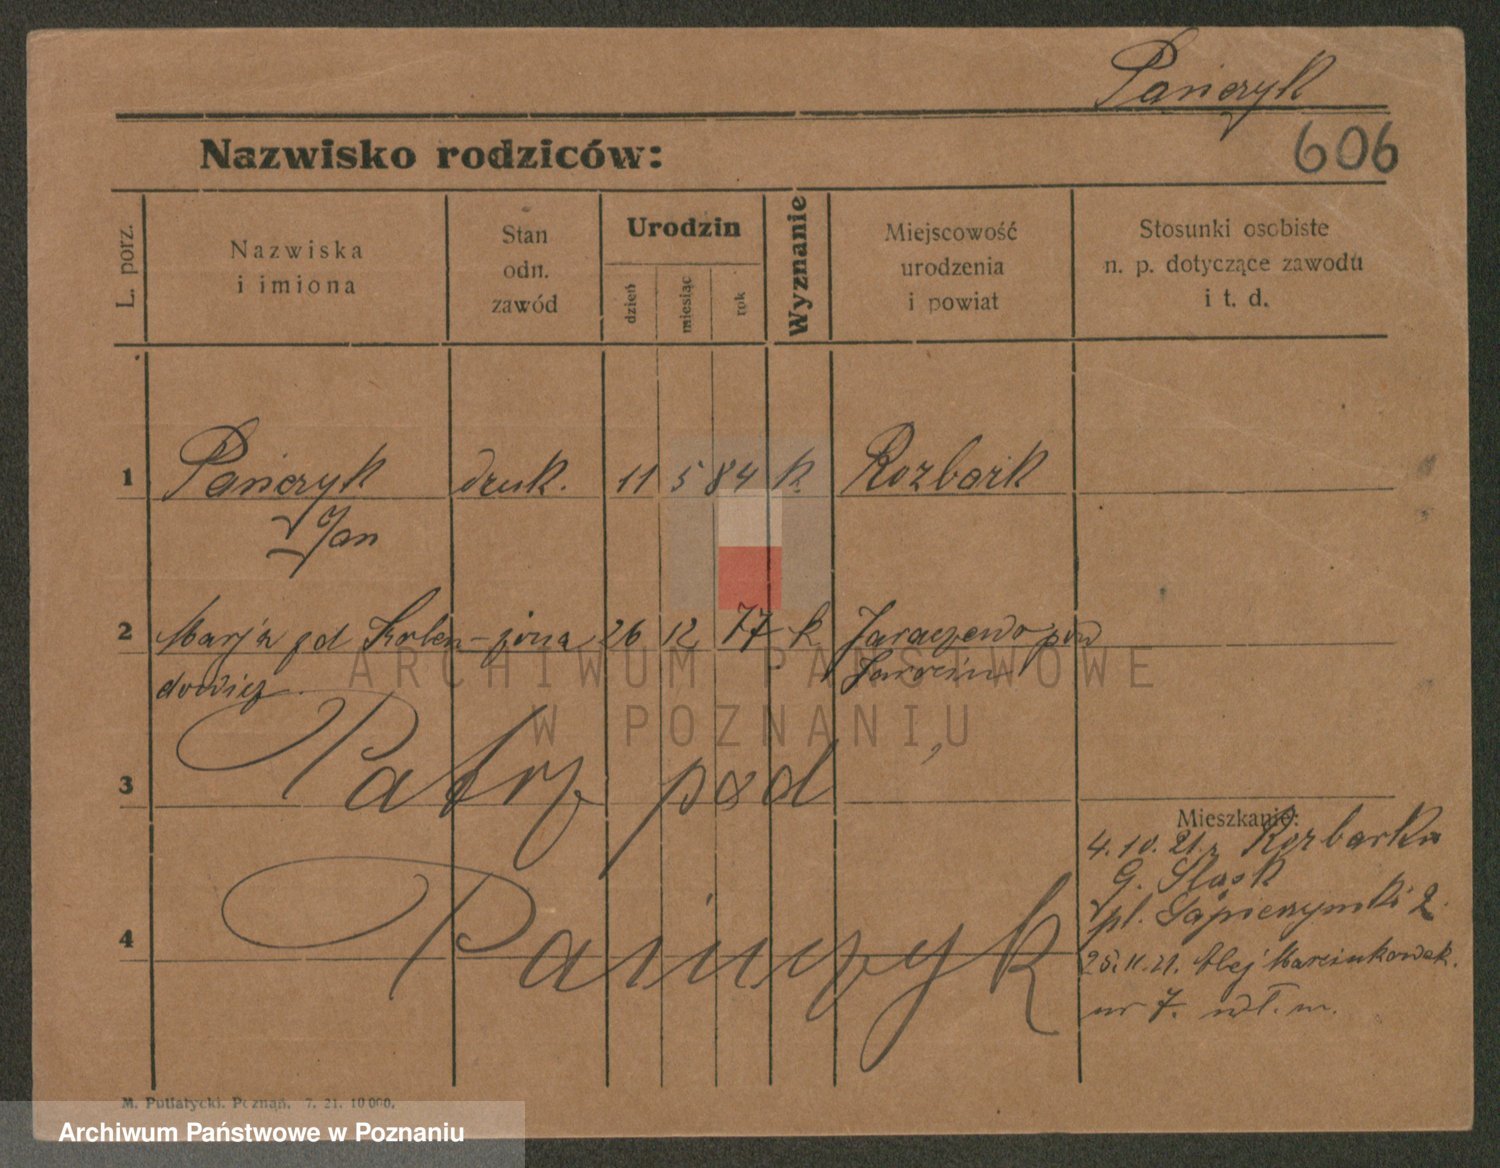 Pańczyk
606
Nazwisko rodziców:
L. porz.
Nazwiska
i imiona
Stan
odn.
zawód
Urodzin
dzień
miesiąc
rok
Wyznanie
Miejscowość
urodzenia
i powiat
Stosunki osobiste
n. p. dotyczące zawodu
i t. d.
1 Pańczyk druk. 11 5 84 k. Rozbark
Jan
2 Marja Korben- żona 26 12 77 k. Jaraczewo pow
dowicz Jarocin
3 Patrz pod
4 Pańczyk
Mieszkanie:
4.10.21. Rozbarku
G. Śląsk
pl. Sapieżyński 2.
25.11.21. Alej Marcinkowsk.
nr 7. wł. m.
M. Putiatycki. Poznań. 7. 21. 10000.
ARCHIWUM PAŃSTWOWE
W POZNANIU
Archiwum Państwowe w Poznaniu